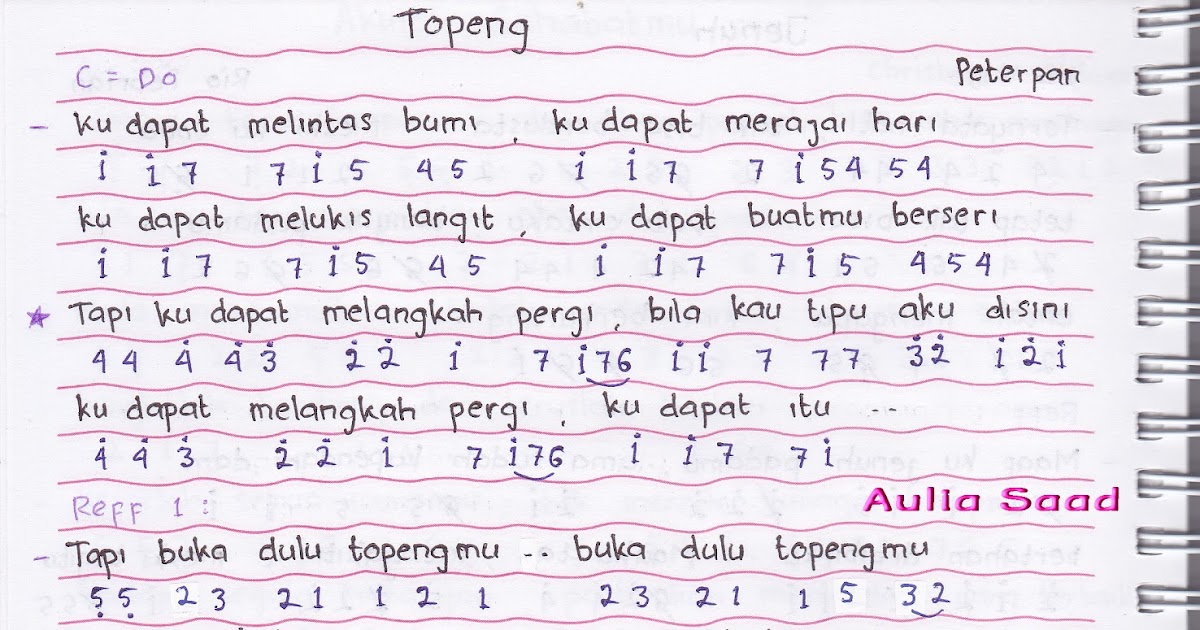 Topeng
C = Do Peterpan
- ku dapat melintas bumi, ku dapat merajai hari
i̇ i̇ 7 7 i̇ 5 4 5 i̇ i̇ 7 7 i̇ 5 4 5 4
ku dapat melukis langit, ku dapat buatmu berseri
i̇ i̇ 7 7 i̇ 5 4 5 i̇ i̇ 7 7 i̇ 5 4 5 4
★ Tapi ku dapat melangkah pergi, bila kau tipu aku disini
4 4 4̇ 4̇ 3̇ 2̇ 2̇ i̇ 7 i̇76 i̇ i̇ 7 7 7 3̇ 2̇ i̇ 2̇ i̇
ku dapat melangkah pergi, ku dapat itu ---
4̇ 4̇ 3̇ 2̇ 2̇ i̇ 7 i̇76 i̇ i̇ 7 7 i̇
Reff 1 :
Aulia Saad
- Tapi buka dulu topengmu -- buka dulu topengmu
5̣ 5̣ 2 3 2 1 2 1 2 3 2 1 1 5 3 2